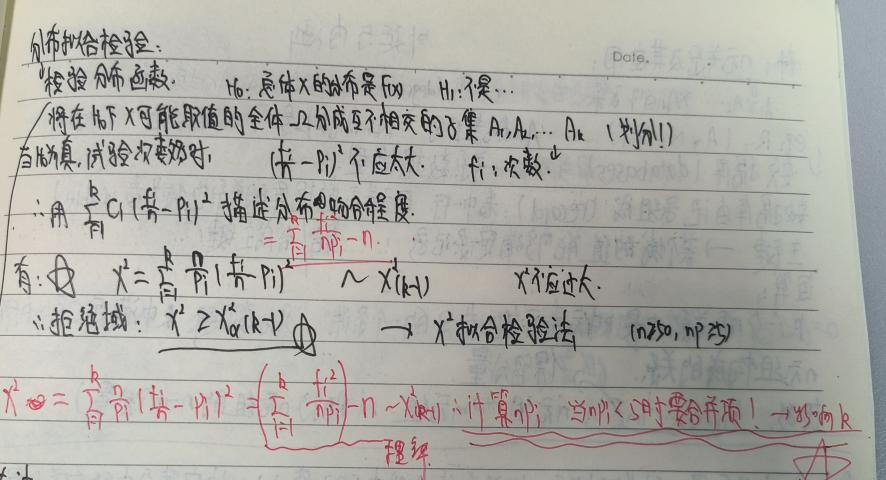 Date.
分布拟合检验:
检验分布函数. H₀: 总体X的分布是F(x) H₁: 不是…
将在H₀下X可能取值的全体Ω分成互不相交的子集 A₁, A₂, … Aₖ (划分!)
当H₀为真, 试验次数多时, (fᵢ/n - pᵢ)² 不应太大. fᵢ: 次数.
∴用 ∑ᵢ₌₁ᵏ Cᵢ(fᵢ/n - pᵢ)² 描述分布的吻合程度.
= ∑ᵢ₌₁ᵏ fᵢ²/npᵢ - n.
有: ☆ χ² = ∑ᵢ₌₁ᵏ n/pᵢ (fᵢ/n - pᵢ)² ~ χ²(k-1) χ²不应过大.
∴拒绝域: χ² ≥ χ²α(k-1) ☆ → χ²拟合检验法 (n≥50, np≥5)
χ² = ∑ᵢ₌₁ᵏ n/pᵢ (fᵢ/n - pᵢ)² = (∑ᵢ₌₁ᵏ fᵢ²/npᵢ) - n ~ χ²(k-1) ∴计算npᵢ 当npᵢ<5时要合并项! → 影响k
理解 ☆